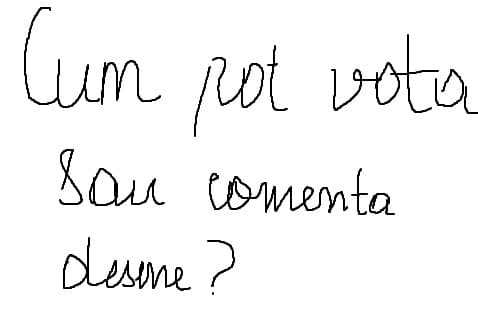 Cum pot vota
sau comenta
desene?